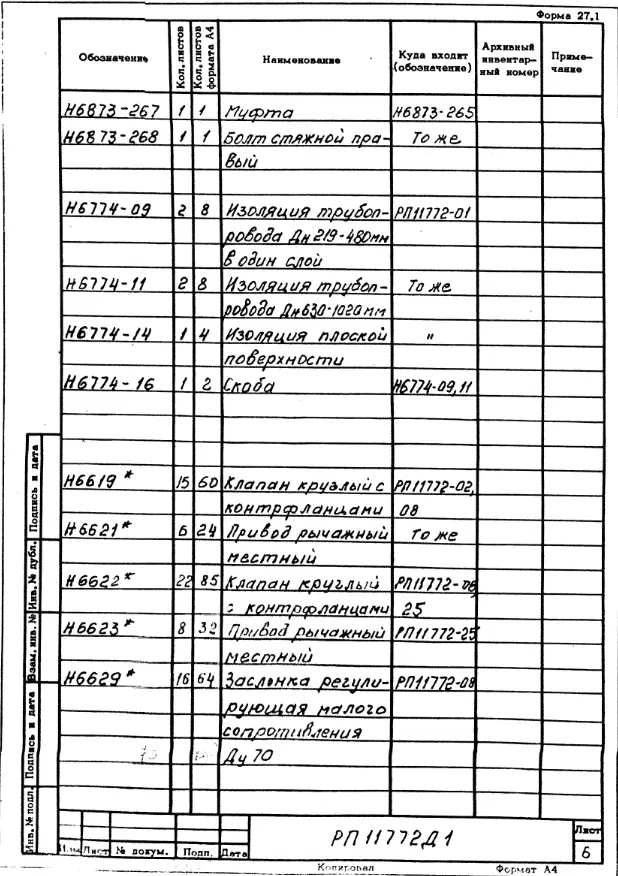 Форма 27.1
Обозначение Кол. листов Кол. листов формата А4 Наименование Куда входит (обозначение) Архивный инвентар-ный номер Приме-чание
Н6873-267 1 1 Муфта Н6873-265
Н6873-268 1 1 Болт стяжной пра- То же
вый
Н6774-09 2 8 Изоляция трубоп- РП11772-01
ровода Дн 219-480мм
в один слой
Н6774-11 2 8 Изоляция трубоп- То же
ровода Дн630-1020мм
Н6774-14 1 4 Изоляция плоской "
поверхности
Н6774-16 1 2 Скоба Н6774-09,11
Н6619* 15 60 Клапан круглый с РП11772-02,
контрфланцами 08
Н6621* 6 24 Привод рычажный То же
местный
Н6622* 22 85 Клапан круглый РП11772-08
с контрфланцами 25
Н6623* 8 32 Привод рычажный РП11772-25
местный
Н6629* 16 64 Заслонка регули- РП11772-08
рующая малого
сопротивления
Ду 70
Инв. № подл. Подпись и дата Взам. инв. № Инв. № дубл. Подпись и дата
Изм. Лист № докум. Подп. Дата
РП 11772Д1
Лист
6
Копировал Формат А4